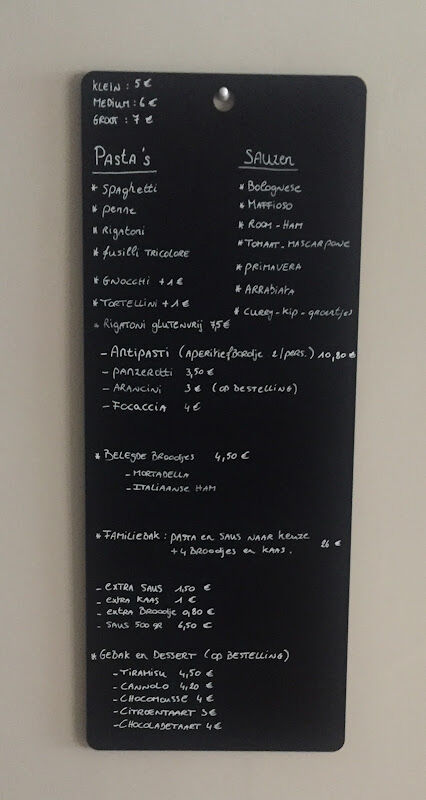 KLEIN : 5 €
MEDIUM : 6 €
GROOT : 7 €
PASTA'S
* SPAGHETTI
* PENNE
* RIGATONI
* FUSILLI TRICOLORE
* GNOCCHI + 1 €
* TORTELLINI + 1 €
* RIGATONI GLUTENVRIJ 7,5 €
SAUZEN
* BOLOGNESE
* MAFFIOSO
* ROOM - HAM
* TOMAAT - MASCARPONE
* PRIMAVERA
* ARRABIATA
* CURRY - KIP - GROENTJES
- ANTIPASTI (APERITIEFBORDJE 2/PERS.) 10,80 €
- PANZEROTTI 3,50 €
- ARANCINI 3 € (OP BESTELLING)
- FOCACCIA 4 €
* BELEGDE BROODJES 4,50 €
- MORTADELLA
- ITALIAANSE HAM
* FAMILIEBAK : PASTA EN SAUS NAAR KEUZE
+ 4 BROODJES EN KAAS. 26 €
- EXTRA SAUS 1,50 €
- EXTRA KAAS 1 €
- EXTRA BROODJE 0,80 €
- SAUS 500 GR 6,50 €
* GEBAK EN DESSERT (OP BESTELLING)
- TIRAMISU 4,50 €
- CANNOLO 4,20 €
- CHOCOMOUSSE 4 €
- CITROENTAART 3 €
- CHOCOLADETAART 4 €